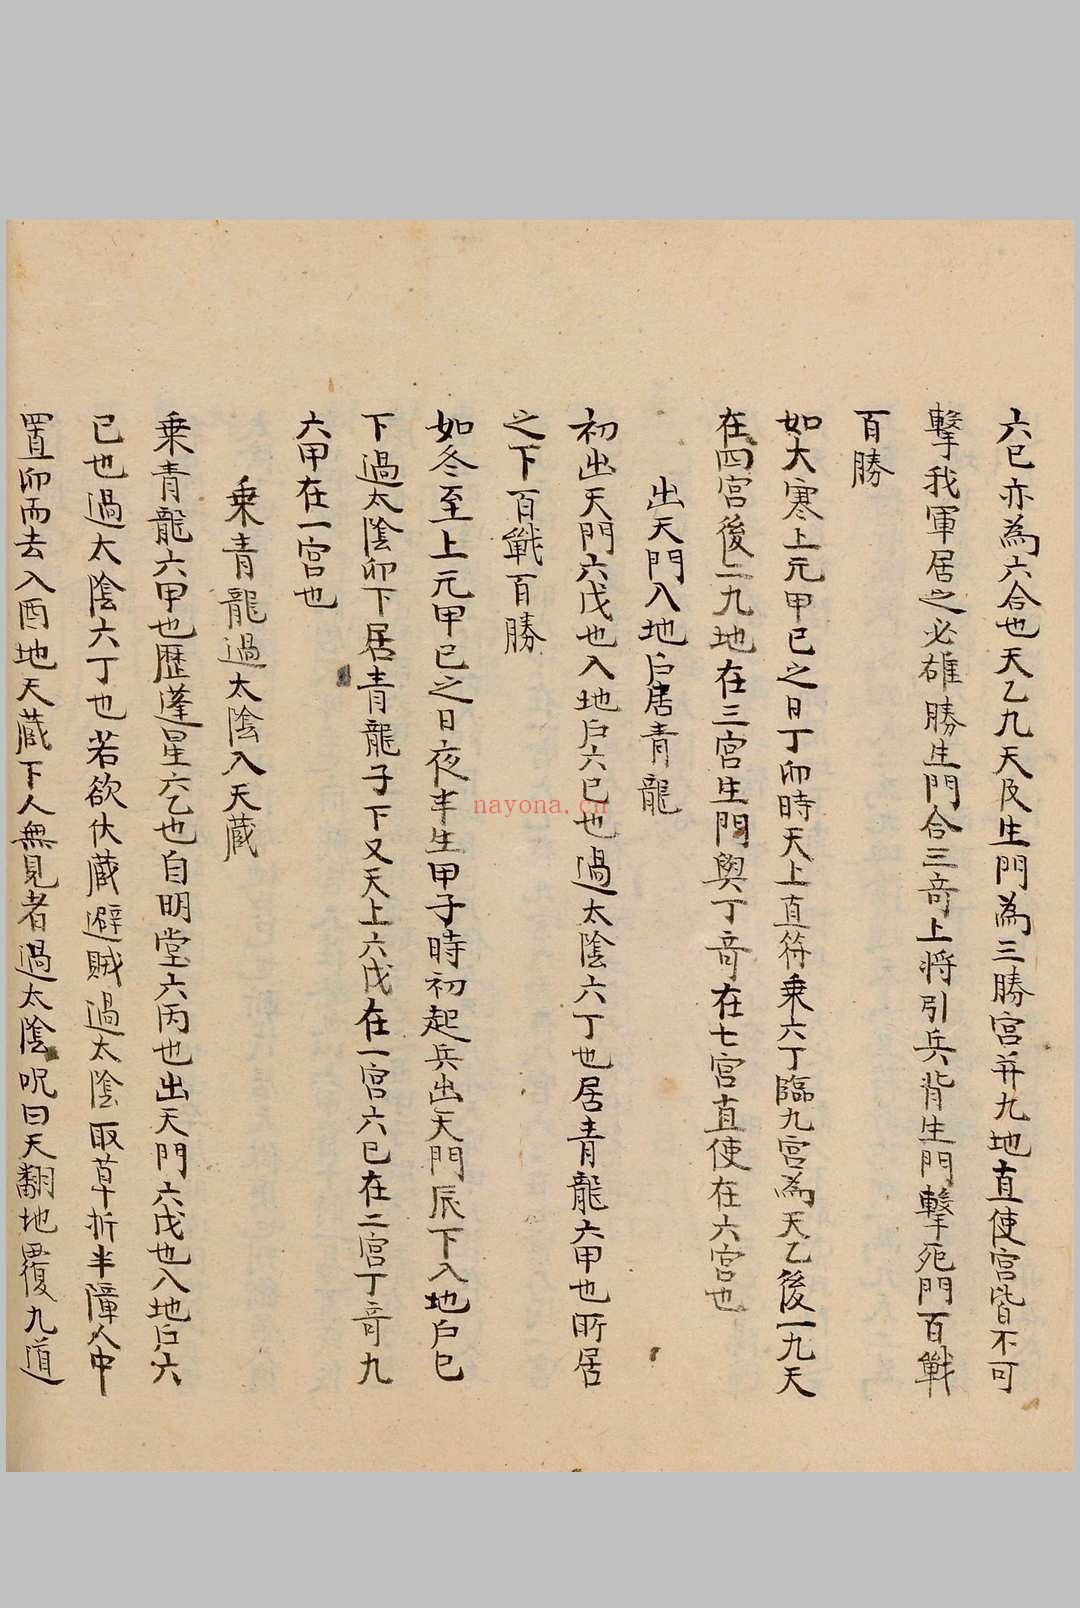 六已亦為六合也天乙九天及生門為三勝宮并九地直使宮皆不可
擊我軍居之必雄勝生門合三奇上將引兵背生門擊死門百戰
百勝
如大寒上元甲已之日丁卯時天上直符乗六丁臨九宮為天乙後一九天
在四宮後二九地在三宮生門與丁竒在七宮直使在六宮也
出天門入地户居青龍
初出天門六戊也入地户六已也過太陰六丁也居青龍六甲也所居
之下百戰百勝
如冬至上元甲已之日夜半生甲子時初起兵出天門辰下入地户巳
下過太陰卯下居青龍子下又天上六戊在一宮六已在二宮丁竒九
六甲在一宮也
乗青龍過太陰入天藏
乗青龍六甲也歷蓬星六乙也自明堂六丙也出天門六戊也入地户六
已也過太陰六丁也若欲伏藏避賊過太陰取草折半障人中
置卯而去入酉地天藏下人無見者過太陰呪曰天翻地覆九道
nayona.cn